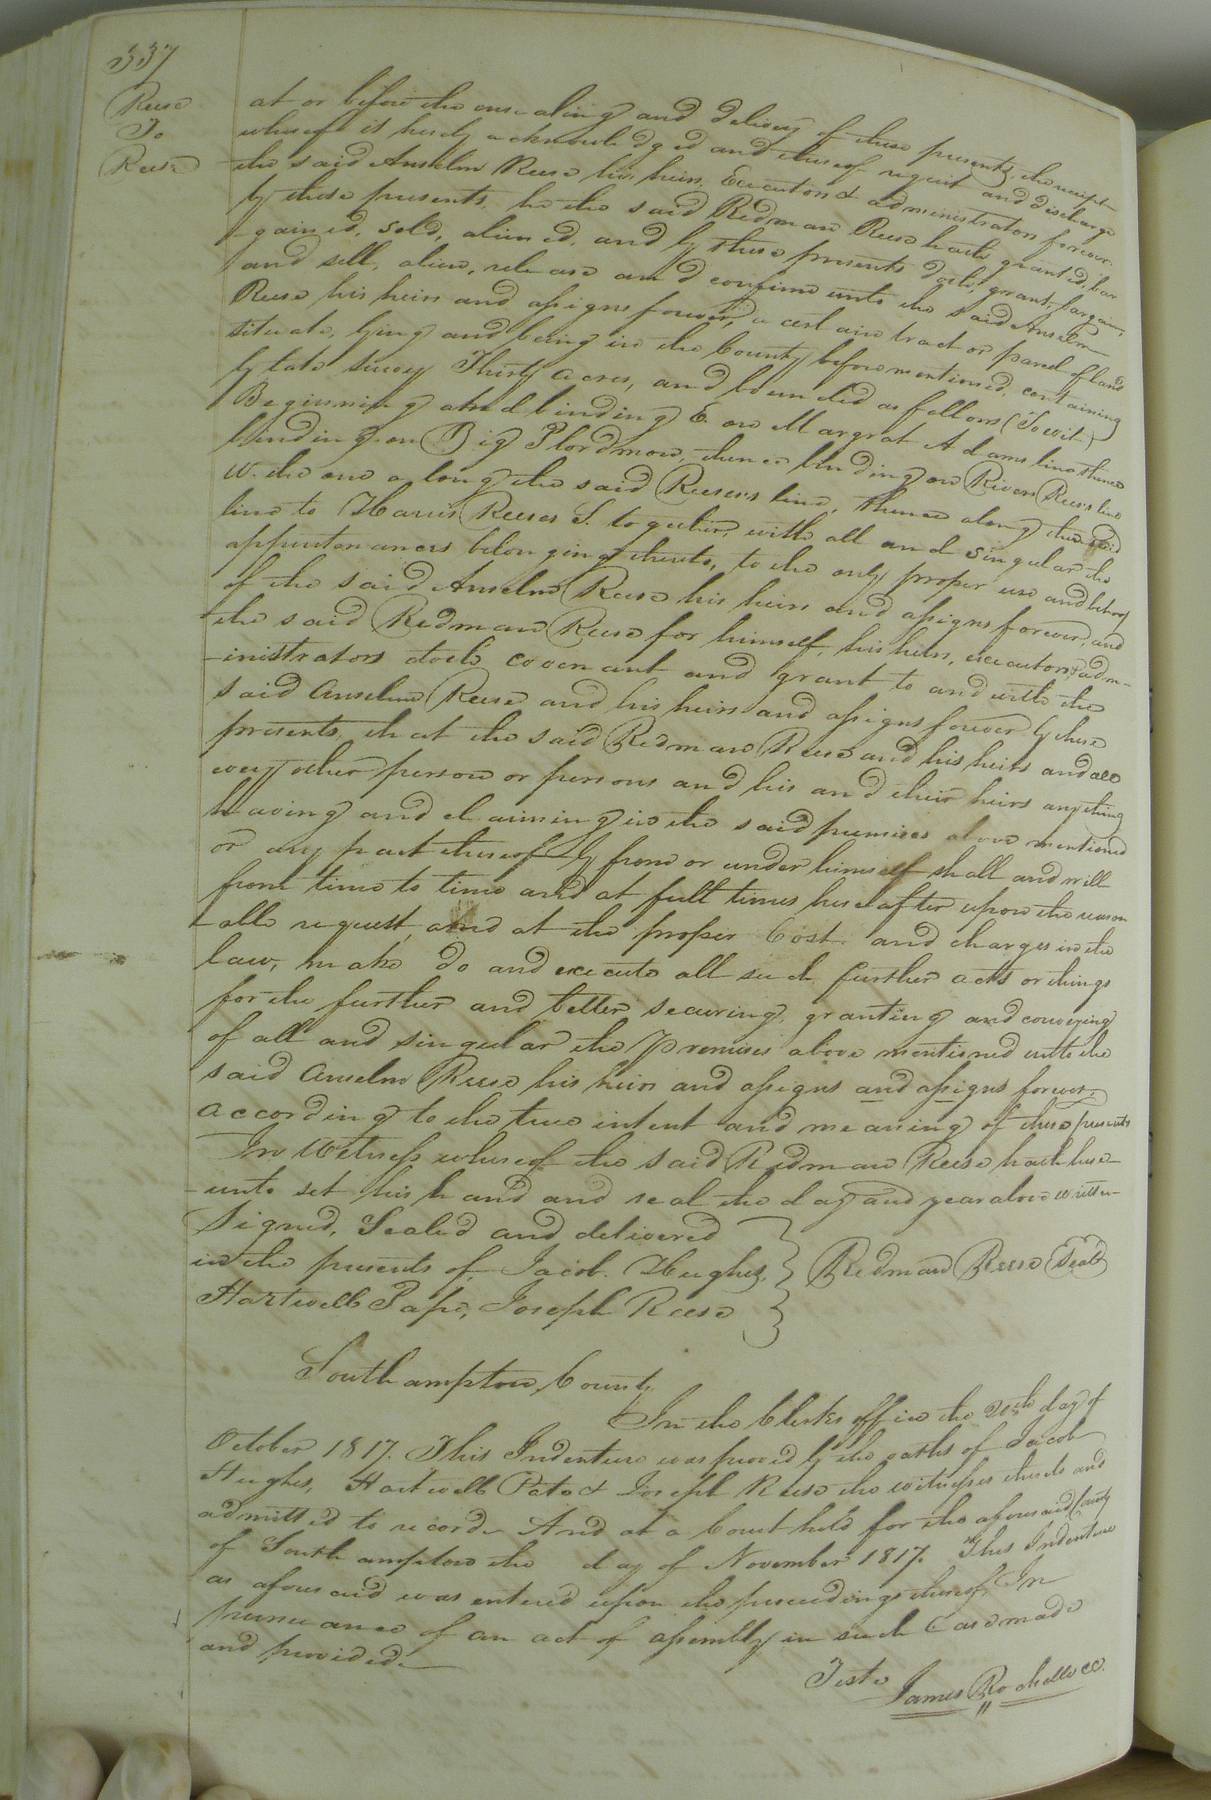 337
Reese
To
Reese
at or before the ensealing and delivery of these presents, the receipt
whereof is hereby acknowledged and thereof acquit and discharge
the said Anselm Reese his heirs, Executors & administrators forever.
by these presents, he the said Redman Reese hath granted, bar
gained, sold, aliened, and by these presents doth, grant, bargain,
and sell, alien, release and confirm unto the said Anselm
Reese his heirs and assigns forever, a certain tract or parcel of land
situate, lying and being in the County before mentioned, containing
by late survey Thirty acres, and bounded as follows (To wit)
Beginning at and binding E. on Margrat Adams line thence
binding on Big thence binding on Rivers Reeses line
W. the one along the said Reeses line, thence along the said
line to Harris Reeses S. together, with all and singular the
appurtenances belonging thereto, to the only proper use and behoof
of the said Anselm Reese his heirs and assigns forever, and
the said Redman Reese for himself, his heirs, executors, & adm-
-inistrators doth covenant and grant to and with the
said Anselm Reese and his heirs and assigns forever by these
presents, that the said Redman Reese and his heirs and all
every other person or persons and his and their heirs anything
having and claiming in the said premises above mentioned
or any part thereof by from or under himself shall and will
from time to time and at full times hereafter upon the reason
-able request, and at the proper Cost and charges in the
law, make do and execute all such further acts or things
for the further and better securing, granting and conveying
of all and singular the Premises above mentioned unto the
said Anselm Reese his heirs and assigns and assigns forever,
according to the true intent and meaning of these presents
In Witness whereof the said Redman Reese hath here-
-unto set his hand and seal the day and year above written
Signed, Sealed and delivered
in the presents of, Jacob. Hughes, Redman Reese (Seal)
Hartwell Pate, Joseph Reese
Southampton, County
In the Clerks office the 20th day of
October 1817. This Indenture was proved by the oaths of Jacob
Hughes, Hartwell Pate & Joseph Reese the witnesses thereto and
admitted to record. And at a Court held for the aforesaid County
of Southampton the day of November 1817. This Indenture
as aforesaid was entered upon the proceedings thereof, In
pursuance of an act of assembly in such Case made
and provided.
Teste
James Rochelle CC.